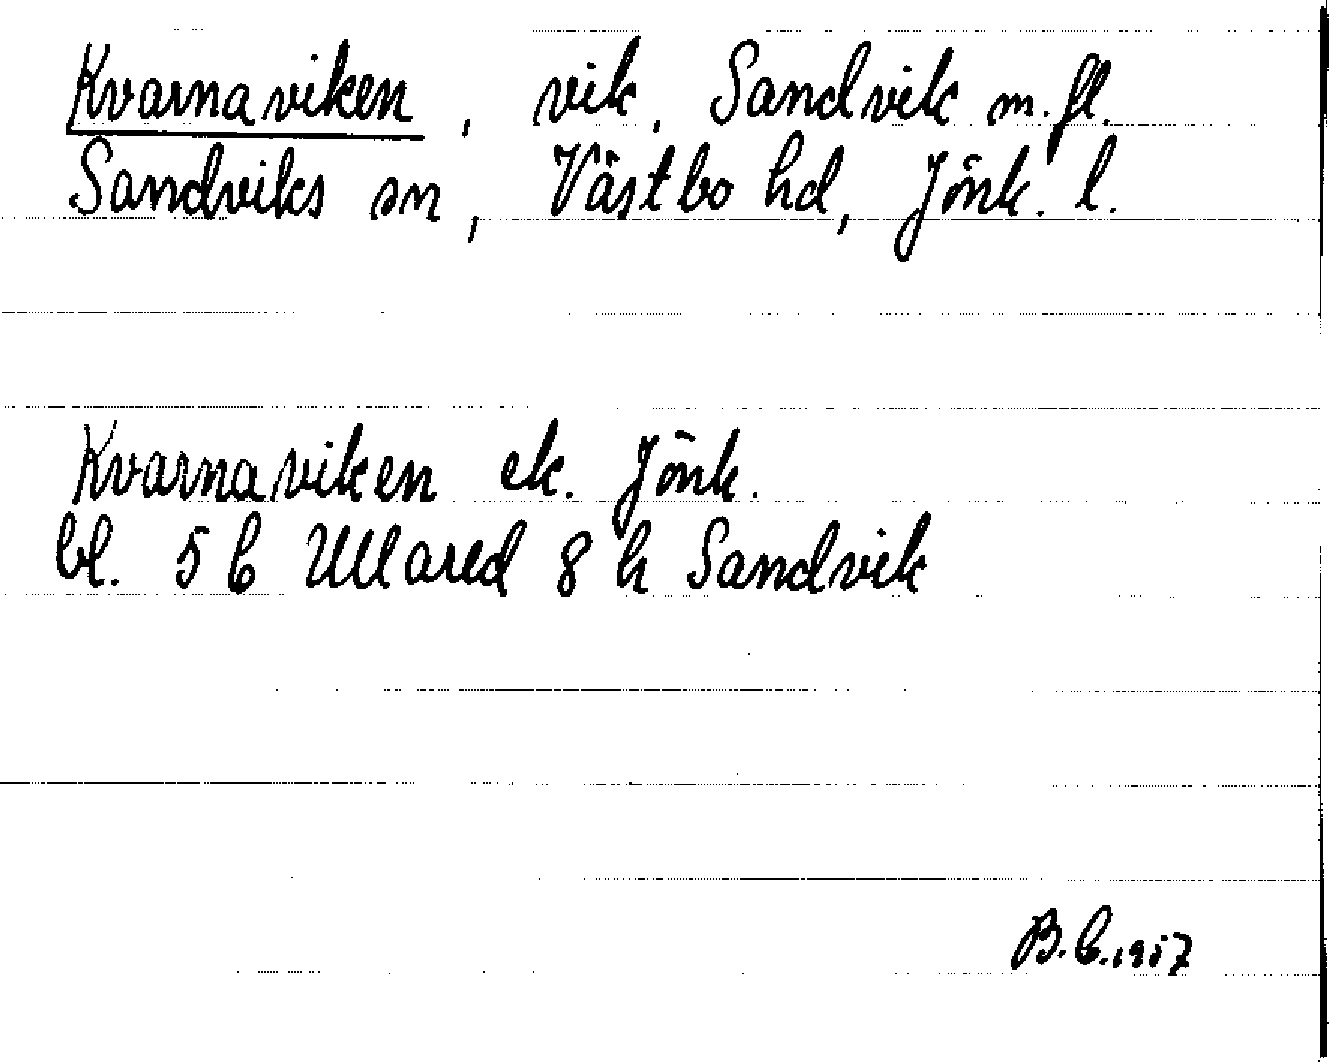 Kvarnaviken, vik, Sandvik m.fl.
Sandviks sn, Västbo hd, Jönk. l.
Kvarnaviken ek. Jönk.
bl. 5 C Ullared 8 h Sandvik